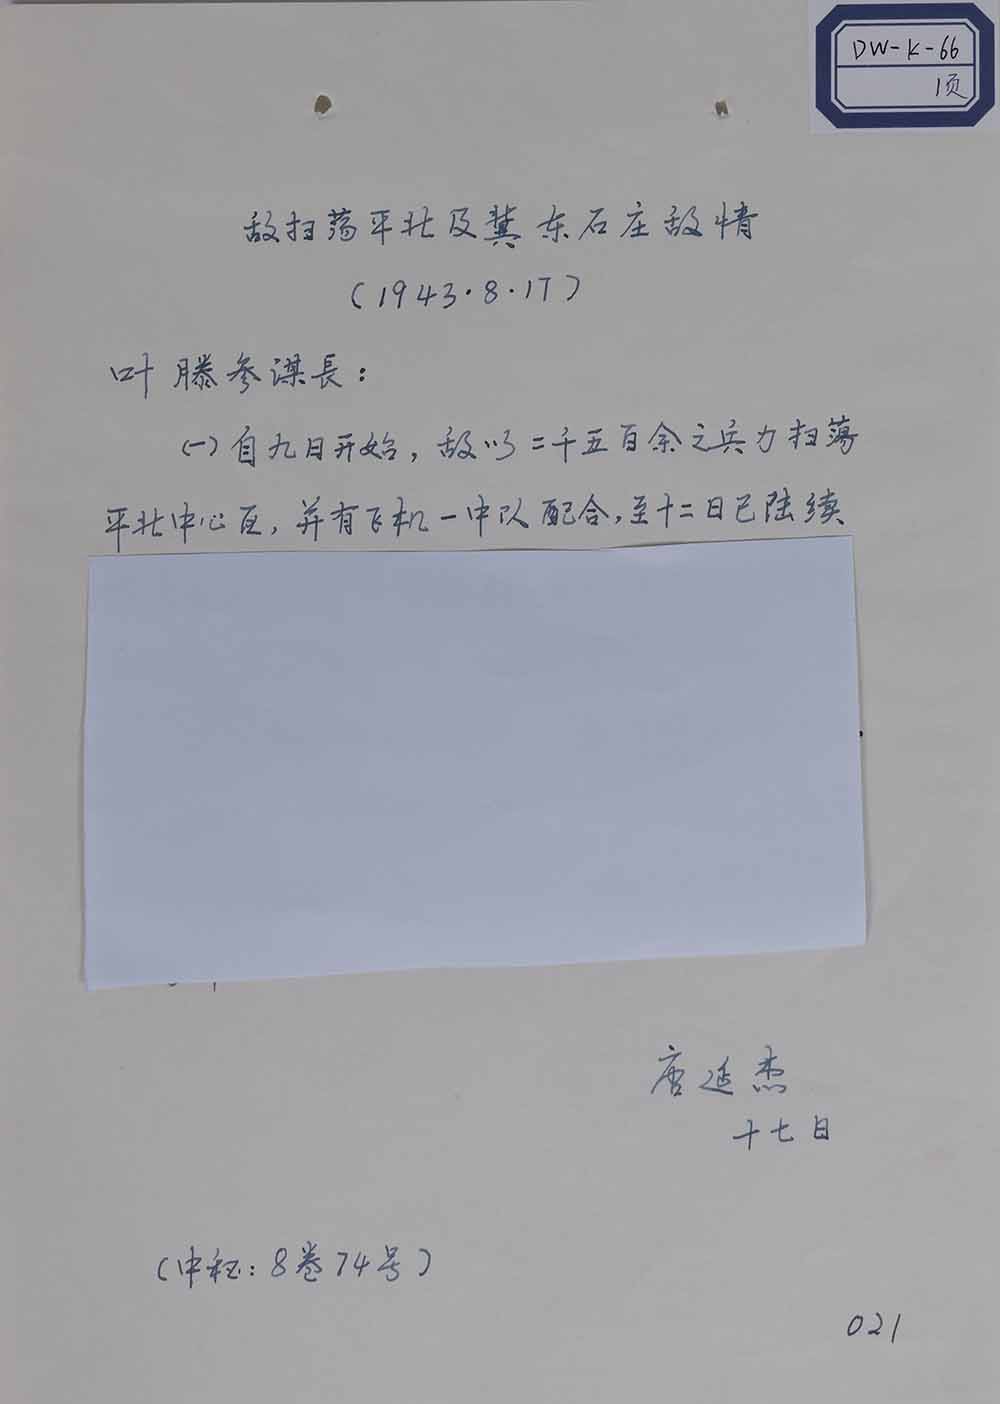 DW-K-66
1页
敌扫荡平北及冀东石庄敌情
(1943.8.17)
叶滕参谋長：
(一)自九日开始，敌以二千五百余之兵力扫荡
平北中心区，并有飞机一中队配合，至十二日已陆续
唐延杰
十七日
(中秘：8卷74号)
021